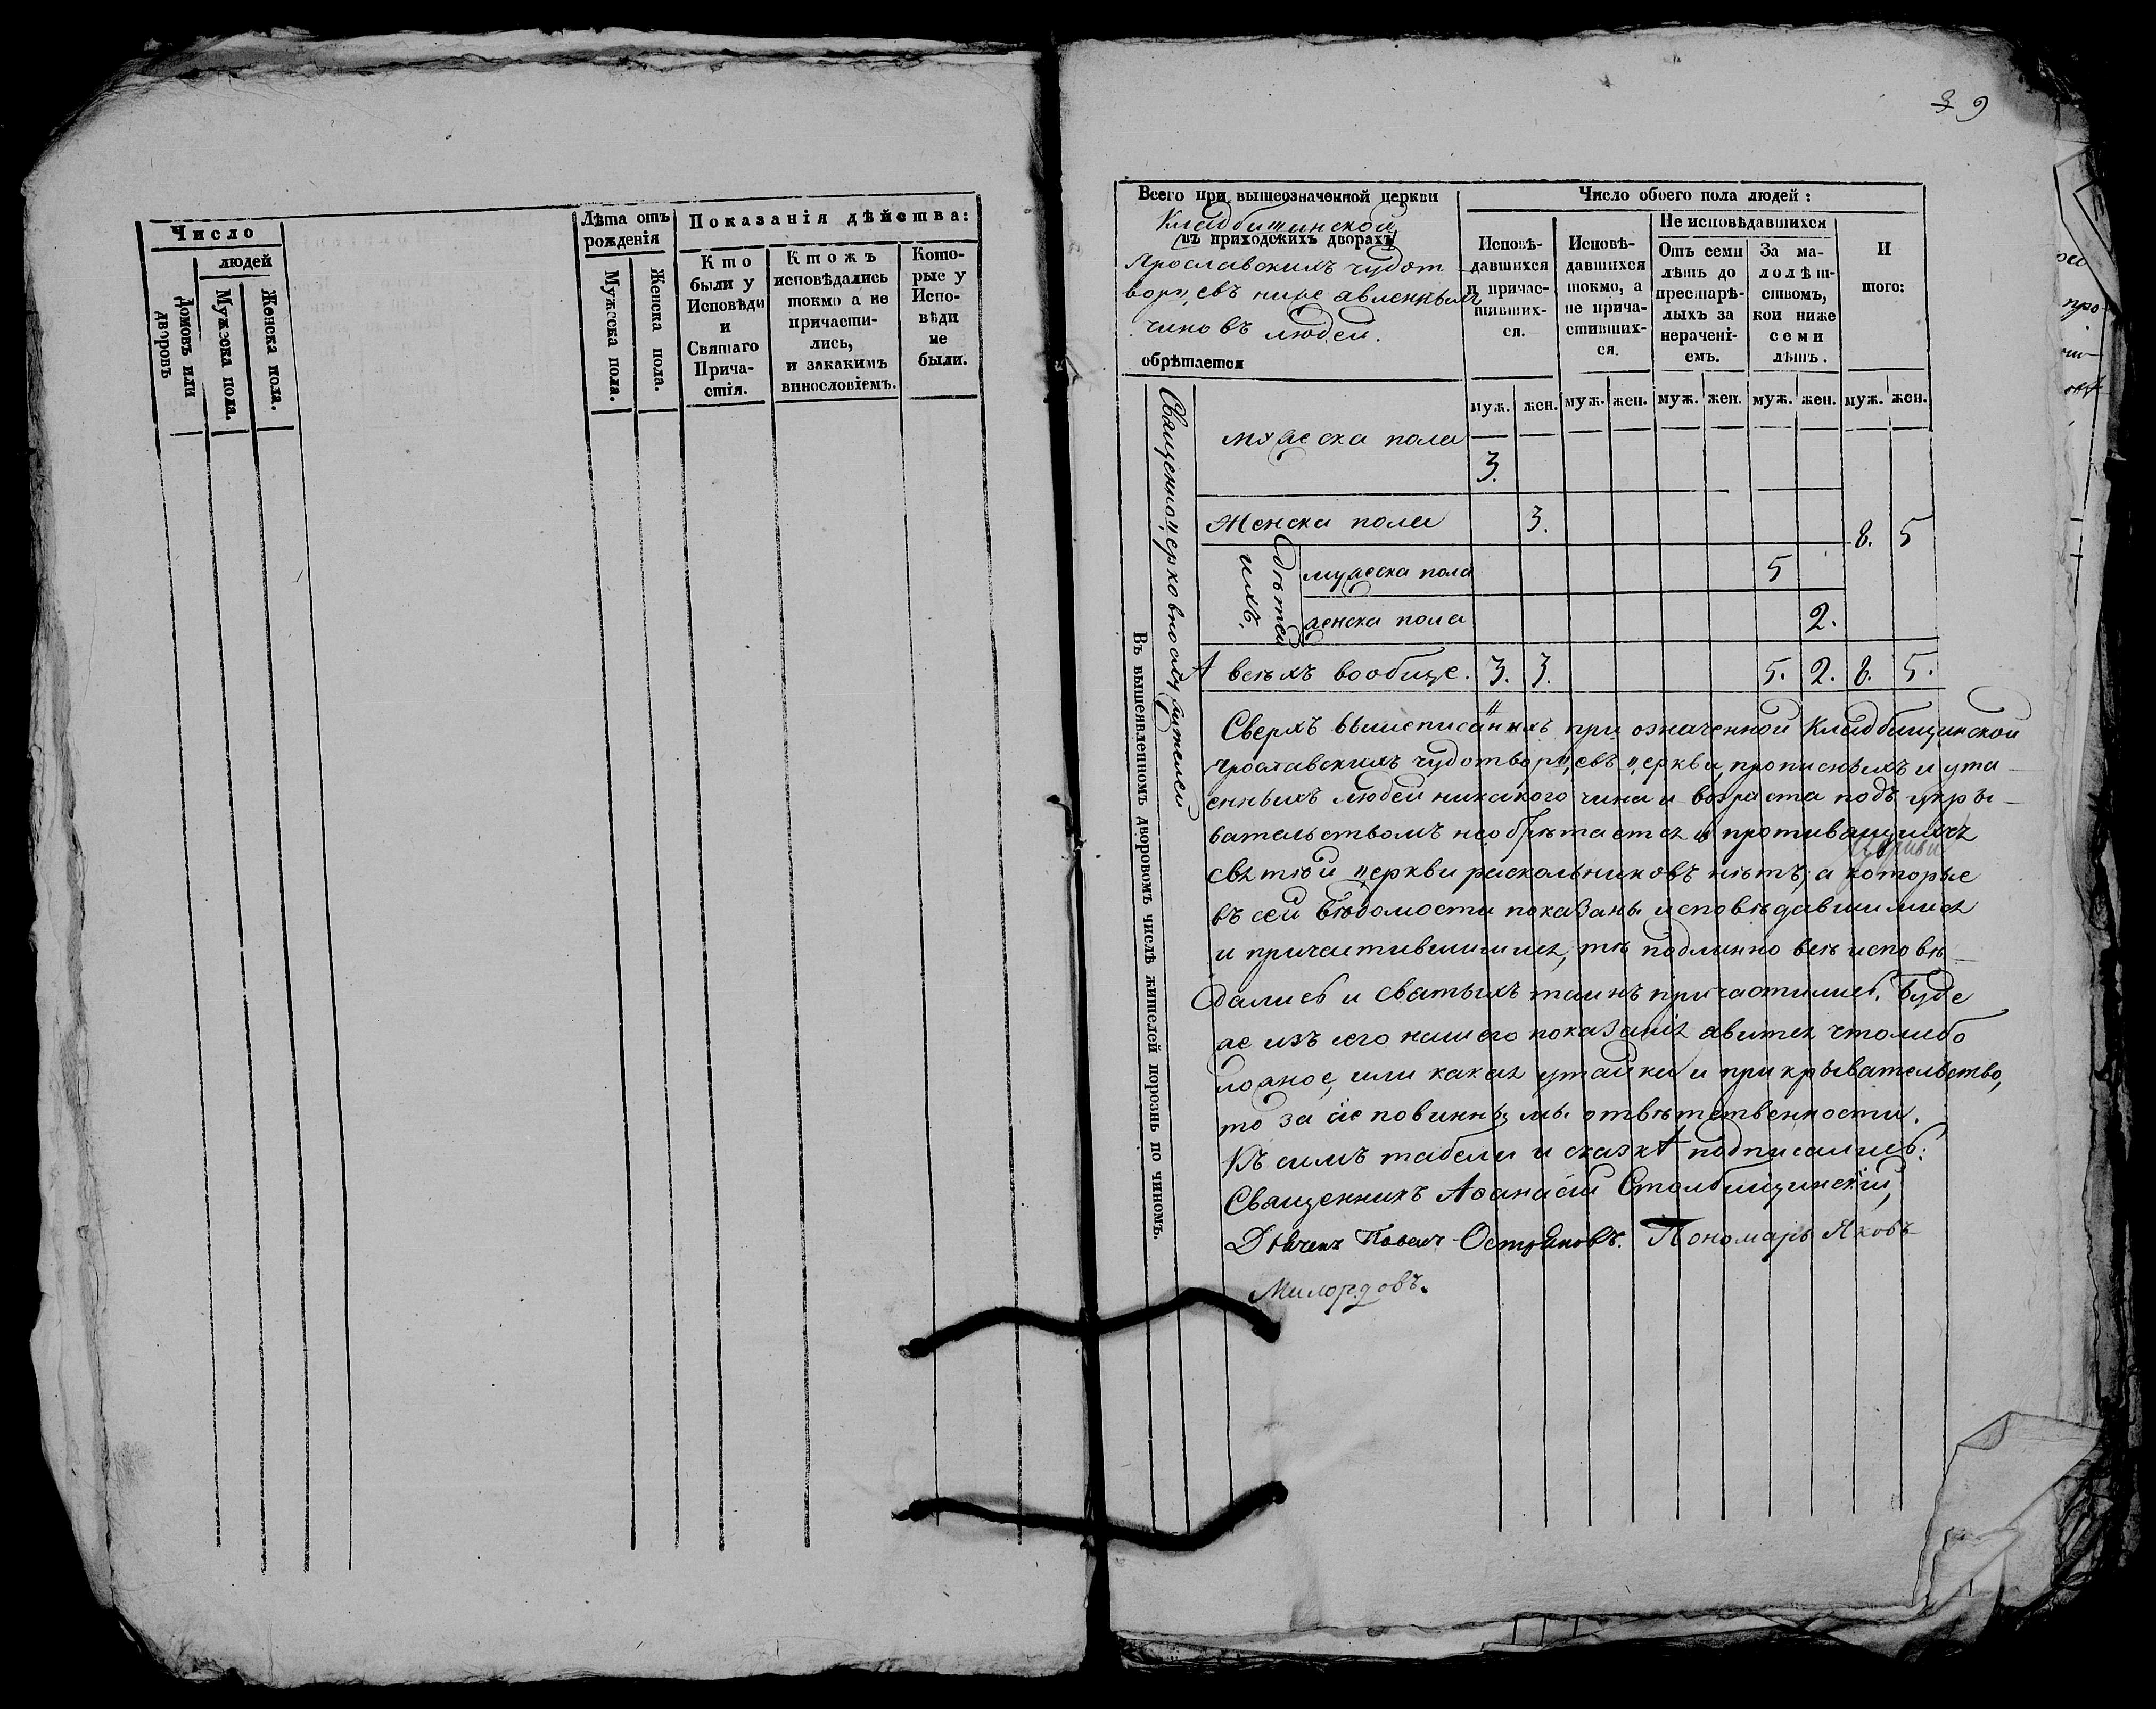 Число
людей
Домовъ или дворовъ
Мужеска пола.
Женска пола.
Лѣта отъ
рожденія
Мужеска пола.
Женска пола.
Показанія дѣйства:
Кто
были у
Исповѣди
и
Святаго
Прича-
стія.
Ктожъ
исповѣдались
токмо а не
причасти-
лись,
и закакимъ
винословіемъ.
Кото-
рые у
Испо-
вѣди
не
были.
39
Всего при вышеозначенной церкви
Кладбищинской
въ приходскихъ дворахъ
Ярославскихъ чудот
ворцевъ ниже явленныхъ
чиновъ людей.
обрѣтается
Число обоего пола людей:
Исповѣ-
давшихся
и причас-
тивших-
ся.
Исповѣ-
давшихся
токмо, а
не прича-
стивших-
ся.
Не исповѣдавшихся
Отъ семи
лѣтъ до
престарѣ-
лыхъ за
нерачені-
емъ.
За ма-
лолѣт-
ствомъ,
кои ниже
семи
лѣтъ.
И
того:
муж. жен. муж. жен. муж. жен. муж. жен. муж. жен.
Въ вышеявленномъ дворовомъ числѣ жителей порознь по чиномъ.
Священноцерковнослужителей
мужеска пола 3.
Женска пола 3. 8. 5
дѣтей
ихъ.
мужеска пола 5
женска пола 2.
А всѣхъ вообще. 3. 3. 5. 2. 8. 5.
Сверхъ вышеписанныхъ при означенной Кладбищинской
Ярославскихъ чудотворцевъ церкви прописныхъ и ута
енныхъ людей никакого чина и возраста подъ укры-
вательствомъ необрѣтается и противящихся
церкви
святѣй церкви раскольниковъ нѣтъ, а которые
въ сей вѣдомости показаны исповѣдавшимися
и причастившимися, тѣ подлинно всѣ исповѣ-
дались и святыхъ таинъ причастились. Буде
же изъ сего нашего показанія явится чтолибо
ложное, или какая утайка и прикрывательство,
то за сіе повинны мы отвѣтственности.
Къ симъ табели и сказкѣ подписались:
Священникъ Аѳанасій Столбищинскій,
Дьячекъ Павелъ Остряковъ. Пономарь Яковъ
Милордовъ.